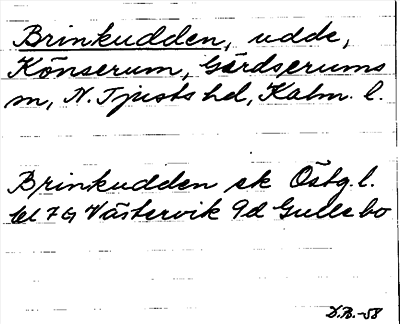 Brinkudden, udde,
Könserum, Gärdserums
sn, N. Tjusts hd, Kalm. l.
Brinkudden ek Östg. l.
bl 7 G Västervik 9d Gullebo
D.B. -58